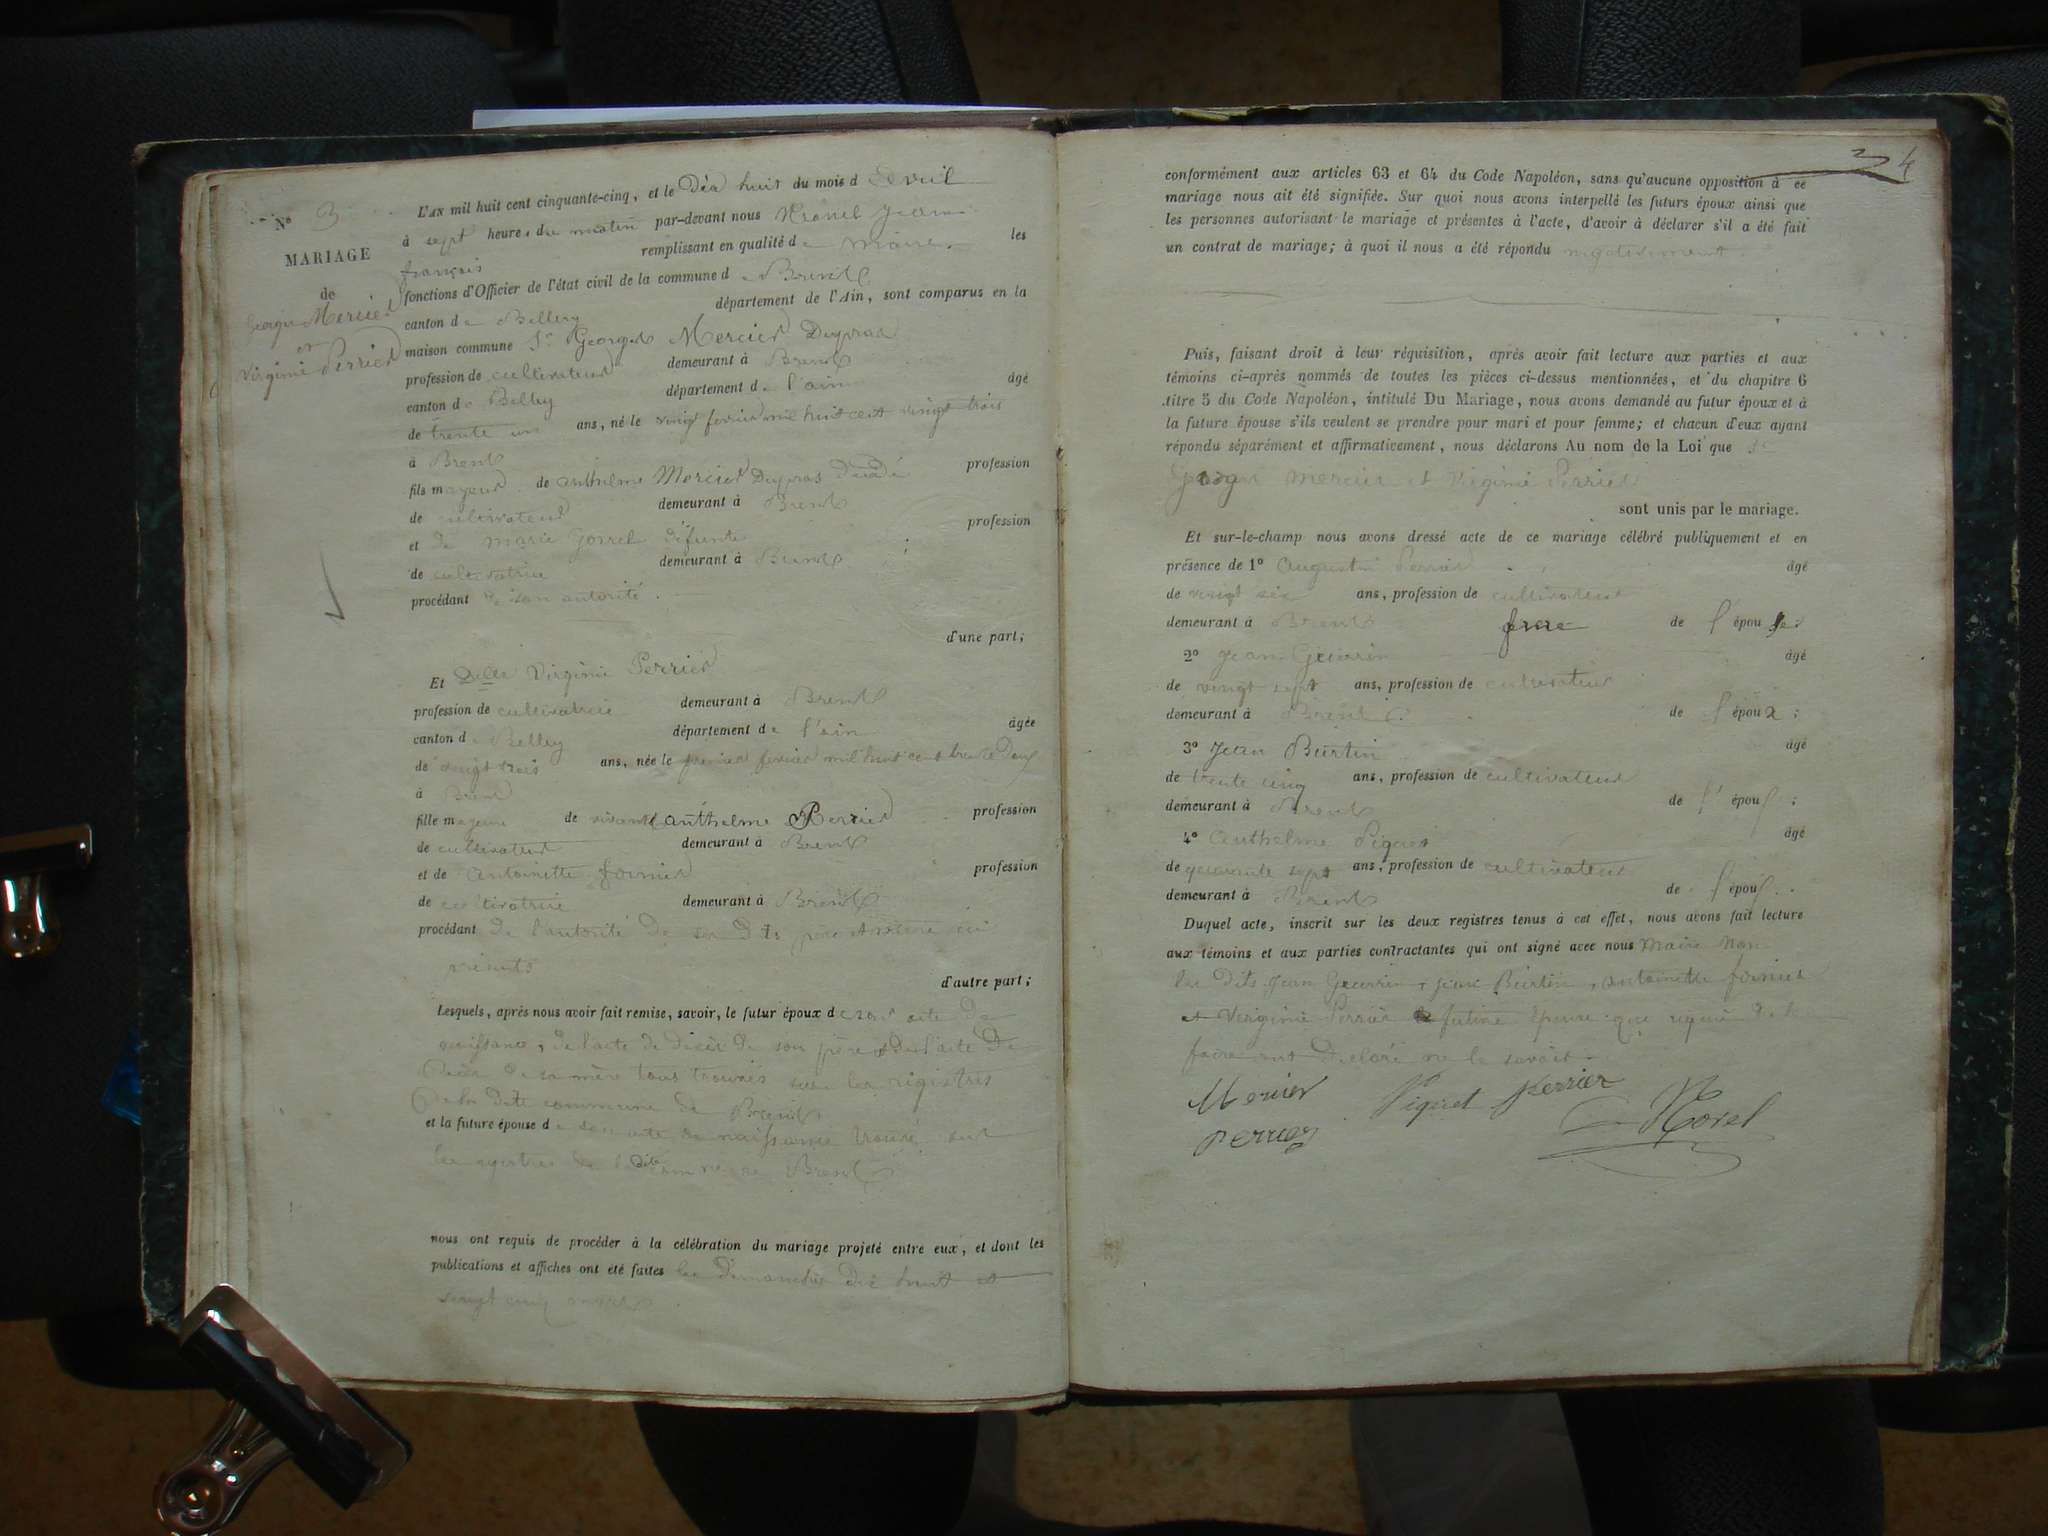 N° 3
MARIAGE
de
George Mercier
et
Virginie Perrier
L'AN mil huit cent cinquante-cinq, et le Dix huit du mois d'Avril
à sept heures du matin par-devant nous Jean
françois remplissant en qualité de Maire les
fonctions d'Officier de l'état civil de la commune de Brens
canton de Belley département de l'Ain, sont comparus en la
maison commune Sr George Mercier Dupras
profession de cultivateur demeurant à Brens
canton de Belley département de l'ain âgé
de trente un ans, né le vingt fevrier mil huit cent vingt trois
à Brens
fils majeur de anthelme Mercier Dupras décédé profession
de cultivateur demeurant à Brens
et de marie Gorrel défunte profession
de cultivatrice demeurant à Brens
procédant de son autorité
d'une part;
Et Delle Virginie Perrier
profession de cultivatrice demeurant à Brens
canton de Belley département de l'ain âgée
de vingt trois ans, née le premier fevrier mil huit cent trente Deux
à Brens
fille majeure de vivant anthelme Perrier profession
de cultivateur demeurant à Brens
et de antoinette fornier profession
de cultivatrice demeurant à Brens
procédant de l'autorité de ses Dts père et mère ici
présents
d'autre part;
Lesquels, après nous avoir fait remise, savoir, le futur époux de son acte de
naissance, de l'acte de décès de son père et de l'acte de
décès de sa mère tous trouvés sur les registres
de la dite commune de Brens
et la future épouse de son acte de naissance trouvé sur
les registres de la dite commune de Brens
nous ont requis de procéder à la célébration du mariage projeté entre eux, et dont les
publications et affiches ont été faites les dimanches dix huit et
vingt cinq mars
4
conformément aux articles 63 et 64 du Code Napoléon, sans qu'aucune opposition à ce
mariage nous ait été signifiée. Sur quoi nous avons interpellé les futurs époux ainsi que
les personnes autorisant le mariage et présentes à l'acte, d'avoir à déclarer s'il a été fait
un contrat de mariage; à quoi il nous a été répondu negativement
Puis, faisant droit à leur réquisition, après avoir fait lecture aux parties et aux
témoins ci-après nommés de toutes les pièces ci-dessus mentionnées, et du chapitre 6
titre 5 du Code Napoléon, intitulé Du Mariage, nous avons demandé au futur époux et à
la future épouse s'ils veulent se prendre pour mari et pour femme; et chacun d'eux ayant
répondu séparément et affirmativement, nous déclarons Au nom de la Loi que Sr
George mercier et Virginie Perrier
sont unis par le mariage.
Et sur-le-champ nous avons dressé acte de ce mariage célébré publiquement et en
présence de 1° Augustin Perrier âgé
de vingt six ans, profession de cultivateur
demeurant à Brens frere de l'épouse
2° Jean Guerrin âgé
de vingt sept ans, profession de cultivateur
demeurant à Brens de l'époux;
3° Jean Burtin âgé
de trente cinq ans, profession de cultivateur
demeurant à Brens de l'époux;
4° anthelme Piquet âgé
de quarante sept ans, profession de cultivateur
demeurant à Brens de l'époux
Duquel acte, inscrit sur les deux registres tenus à cet effet, nous avons fait lecture
aux témoins et aux parties contractantes qui ont signé avec nous Maire Non
les Dits Jean Guerrin, jean Burtin, antoinette fornier
et Verginie Perrier future Epouse que requis de le
faire ont declaré ne le savoir.
Mercier Piquet Perrier
Perrier